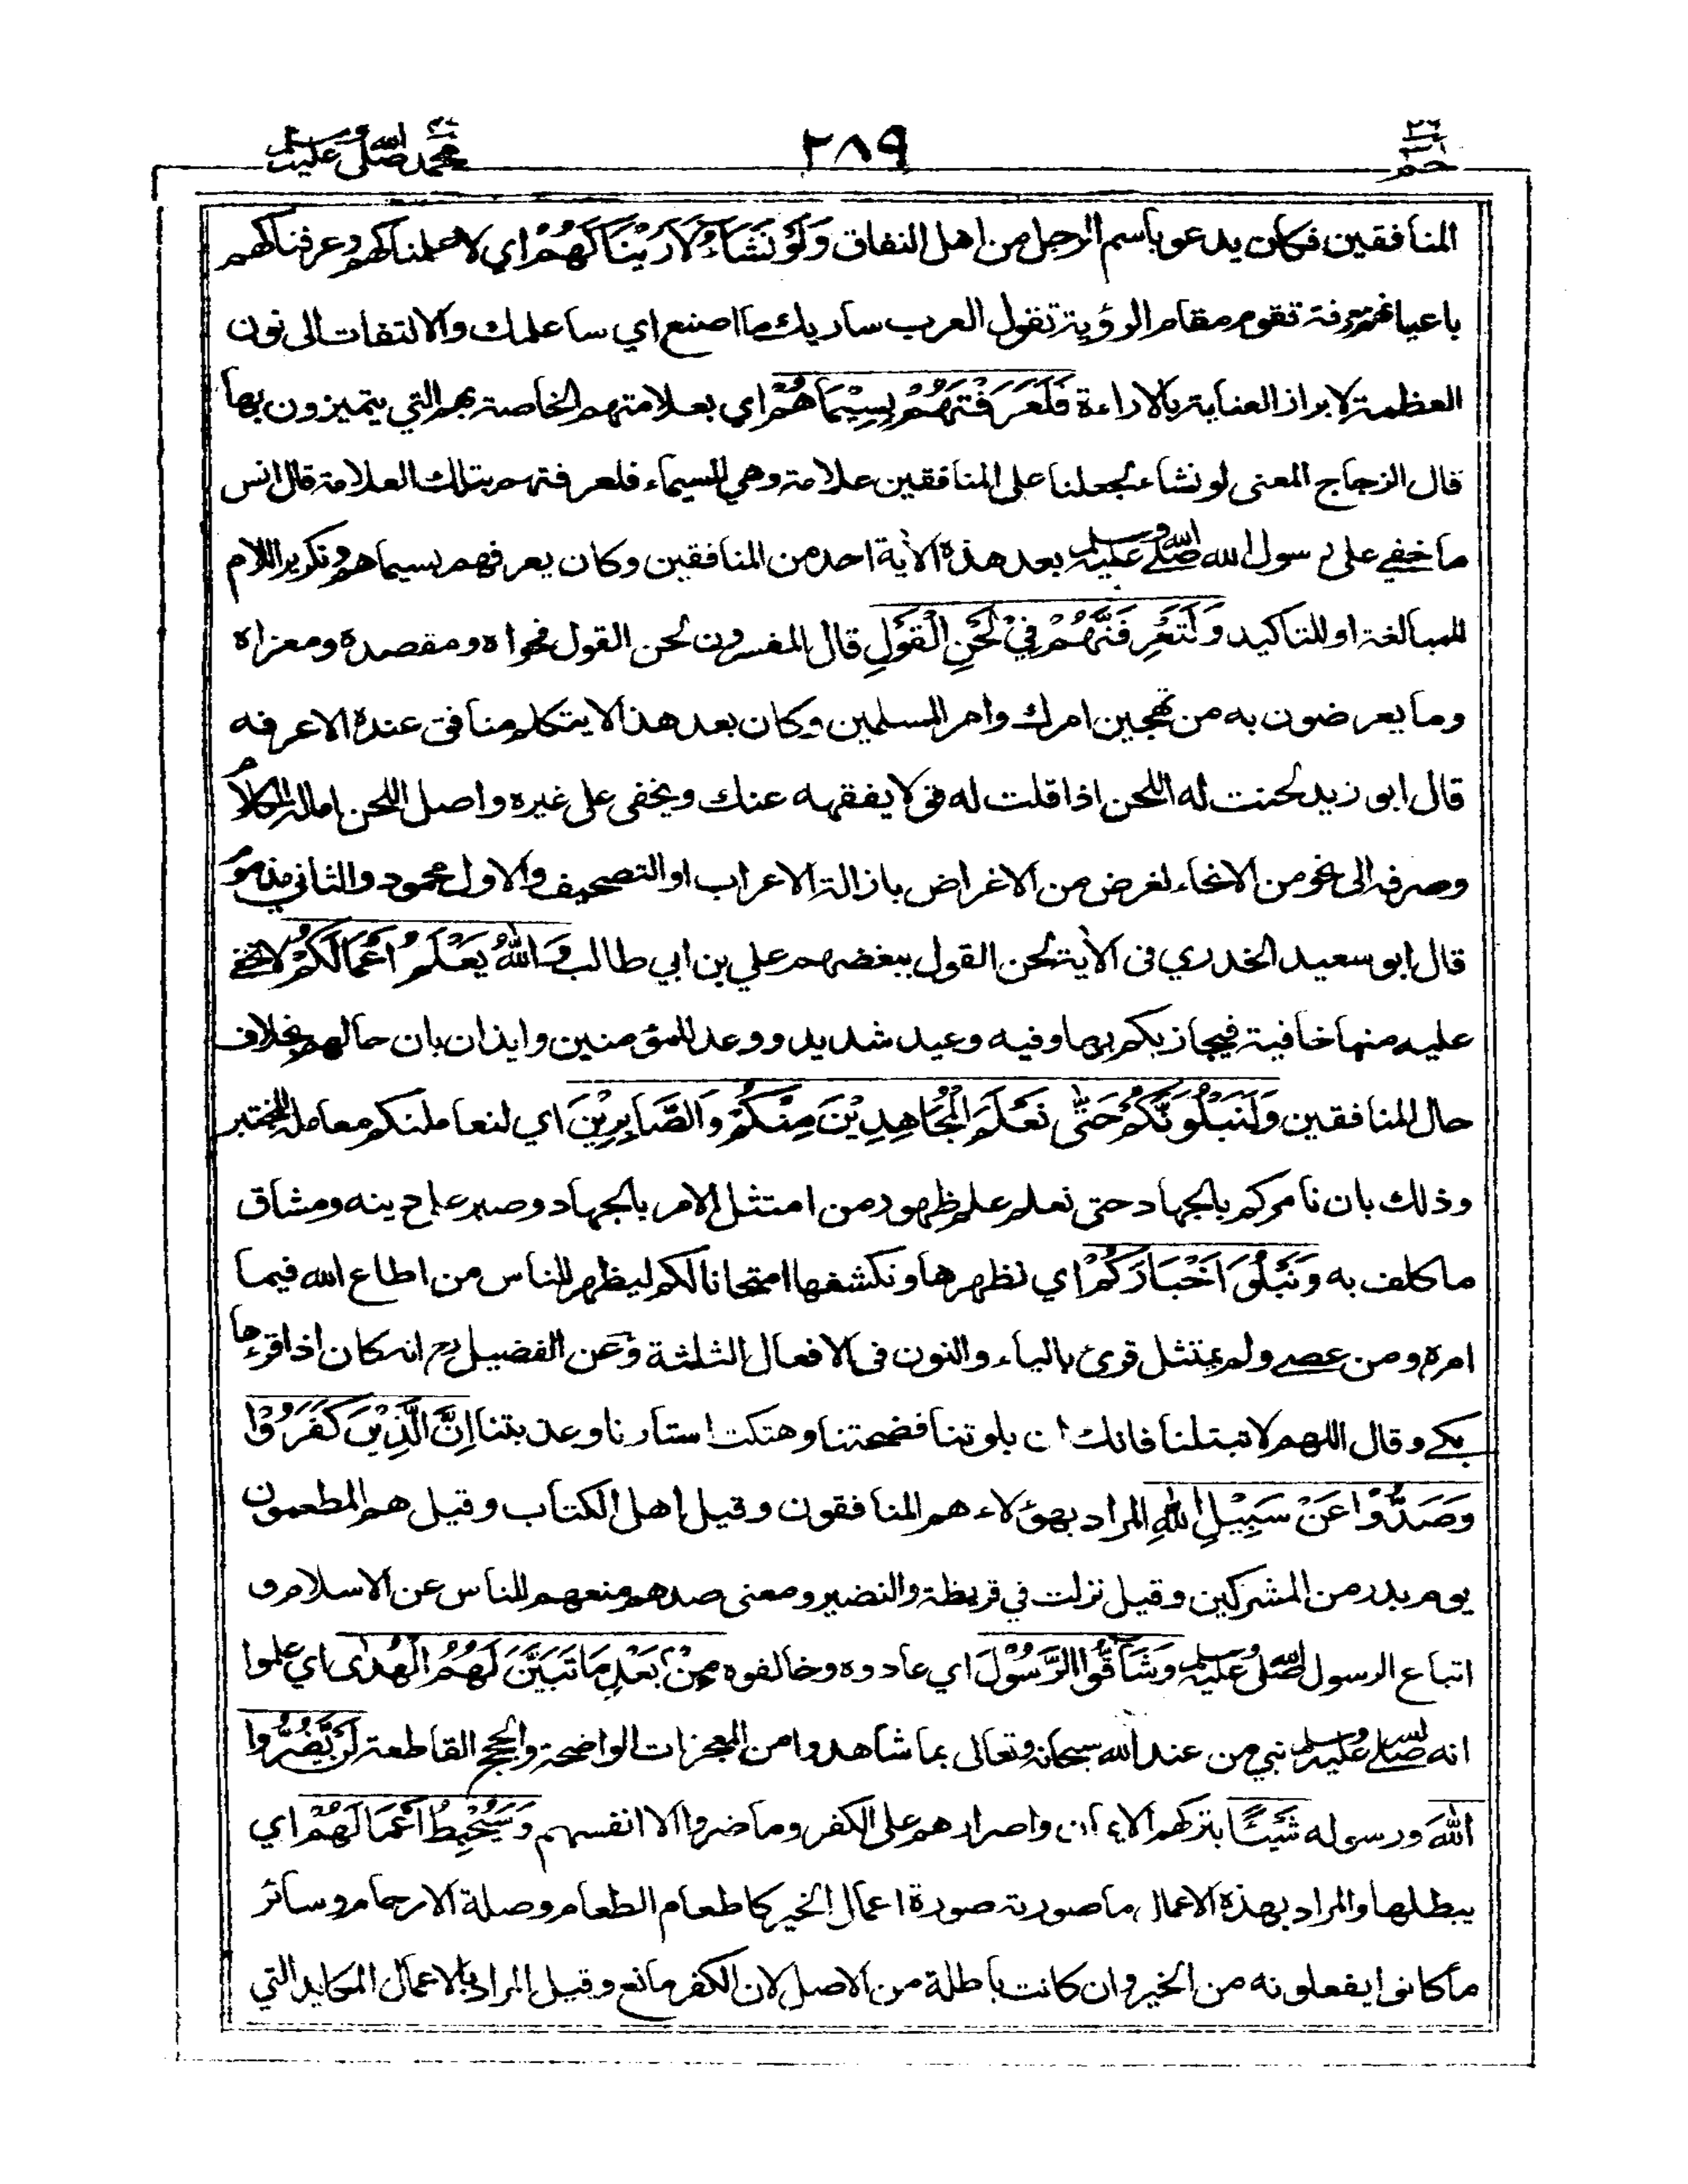 حم ٢٦
٢٨٩
محمد صلى الله عليه وسلم
المنافقين فكان يدعو باسم الرجل من اهل النفاق وَلَوْ نَشَاءُ لَأَرَيْنَاكَهُمْ اي لاعلمناكهم وعرفناكهم
باعيانهم معرفة تقوم مقام الرؤية تقول العرب ساريك ما اصنع اي ساعلمك والالتفات الى نون
العظمة لابراز العناية بالاراءة فَلَعَرَفْتَهُمْ بِسِيْمَاهُمْ اي بعلامتهم الخاصة بهم التي يتميزون بها
قال الزجاج المعنى لو نشاء لجعلنا على المنافقين علامة وهي السيماء فلعرفتهم بتلك العلامة قال انس
ما خفي على رسول الله صلى الله عليه وسلم بعد هذه الأية احد من المنافقين وكان يعرفهم بسيماهم وتكرير اللام
للمبالغة او للتاكيد وَلَتَعْرِفَنَّهُمْ فِيْ لَحْنِ الْقَوْلِ قال المفسرون لحن القول فحواه ومقصده ومغزاه
وما يعرضون به من تهجين امرك وامر المسلمين وكان بعد هذا لا يتكلم منافق عنده الا عرفه
قال ابو زيد لحنت له اللحن اذا قلت له قولا يفقهه عنك ويخفى على غيره واصل اللحن امالة الكلام
وصرفه الى نحو من الانحاء لغرض من الاغراض بازالة الاعراب او التصحيف والاول محمود والثاني مذموم
قال ابو سعيد الخدري فى الأية لحن القول ببغضهم علي بن ابي طالب وَاللّٰهُ يَعْلَمُ اَعْمَالَكُمْ لا تخفى
عليه منها خافية فيجازيكم بها وفيه وعيد شديد ووعد للمؤمنين وايذان بان حالهم بخلاف
حال المنافقين وَلَنَبْلُوَنَّكُمْ حَتّٰى نَعْلَمَ الْمُجَاهِدِيْنَ مِنْكُمْ وَالصَّابِرِيْنَ اي لنعاملنكم معاملة المختبر
وذلك بان نامركم بالجهاد حتى نعلم علم ظهور من امتثل الامر بالجهاد وصبر على دينه ومشاق
ما كلف به وَنَبْلُوَ اَخْبَارَكُمْ اي نظهرها ونكشفها امتحانا لكم ليظهر للناس من اطاع الله فيما
امره ومن عصى ولم يمتثل قرئ بالياء والنون فى الافعال الثلثة وعن الفضيل رح انه كان اذا قرءها
بكى وقال اللهم لا تبتلنا فانك ان بلوتنا فضحتنا وهتكت استارنا وعذبتنا اِنَّ الَّذِيْنَ كَفَرُوْا
وَصَدُّوْا عَنْ سَبِيْلِ اللّٰهِ المراد بهؤلاء هم المنافقون وقيل اهل الكتاب وقيل هم المطعمون
يوم بدر من المشركين وقيل نزلت في قريظة والنضير ومعنى صدهم منعهم للناس عن الاسلام و
اتباع الرسول صلى الله عليه وسلم وَشَاقُّوا الرَّسُوْلَ اي عادوه وخالفوه مِنْ بَعْدِ مَا تَبَيَّنَ لَهُمُ الْهُدٰى اي علموا
انه صلى الله عليه وسلم نبي من عند الله سبحانه وتعالى بما شاهدوا من المعجزات الواضحة والحجج القاطعة لَنْ يَّضُرُّوا
اللّٰهَ ورسوله شَيْئًا بتركهم الايمان واصرارهم على الكفر وما ضروا الا انفسهم وَسَيُحْبِطُ اَعْمَالَهُمْ اي
يبطلها والمراد بهذه الاعمال ما صورته صورة اعمال الخير كاطعام الطعام وصلة الارحام وسائر
ما كانوا يفعلونه من الخير وان كانت باطلة من الاصل لان الكفر مانع وقيل المراد بالاعمال المكايد التي